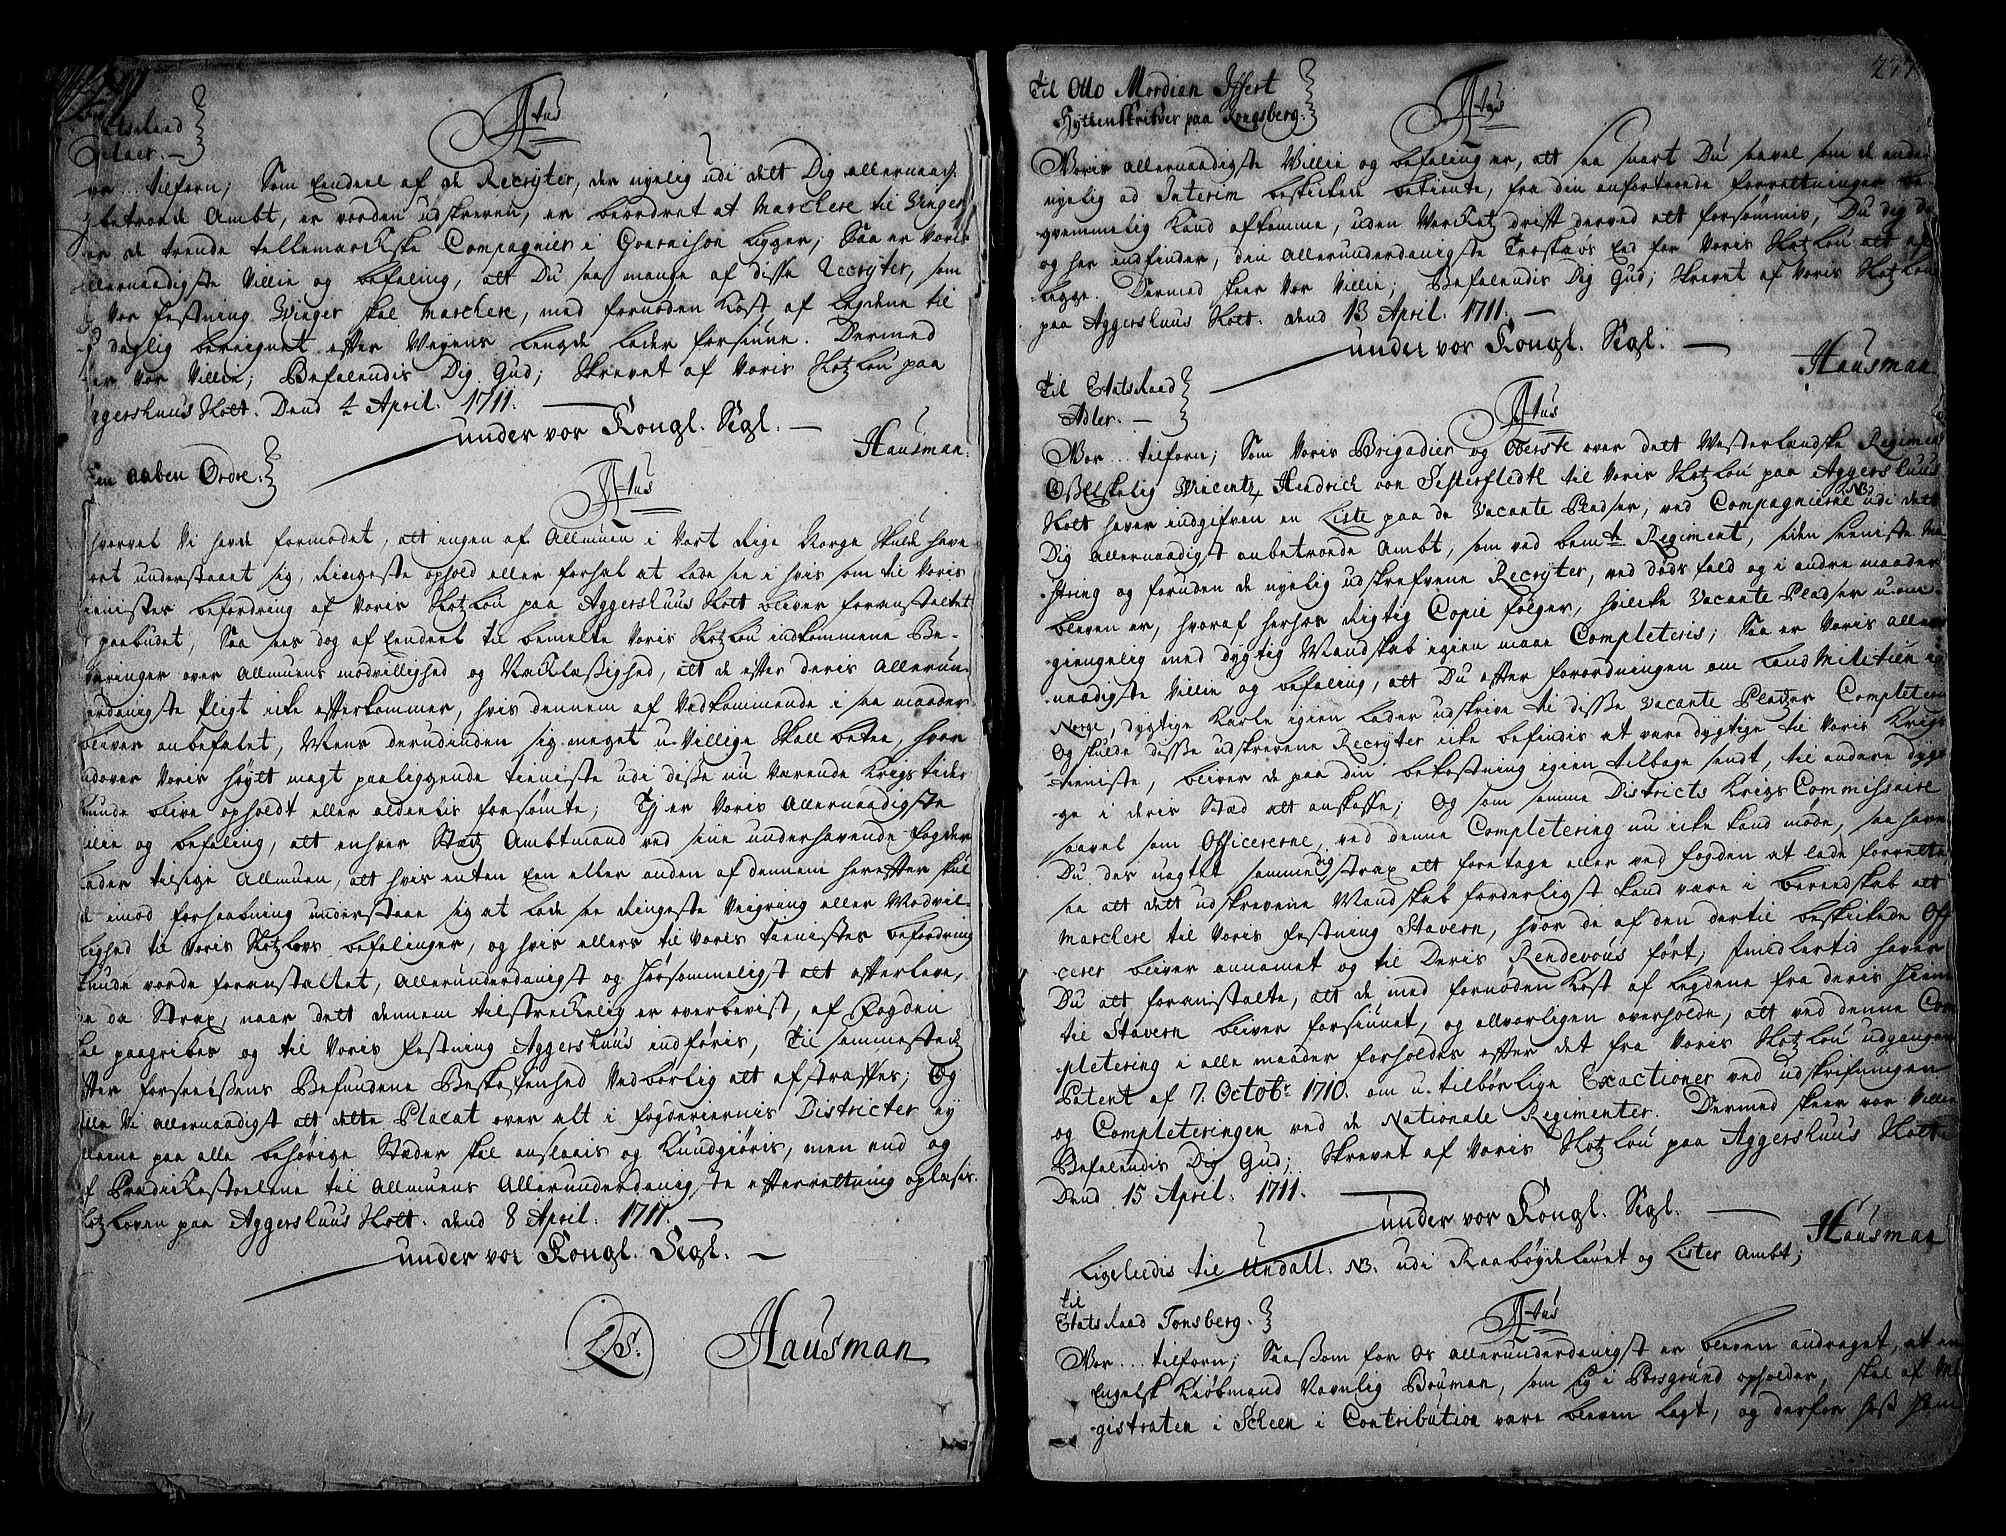 Etatsraad
Adler. —
Atus
Vor... tilforn; Som Eendeel af de Recrÿter, der nyelig udi dett Dig allernaad:
betroede Ambt, er vorden udskreven, er beordret at Marchere til Vinger
de trende tellemarckske Compagnier i Gvarnison ligger; Saa er Voris
allernaadigste Villie og befaling, att Du saa mange af disse Recrÿter, som
Vor festning Vinger skal Marchere, med fornøden Kost af legdene til
daglig beregnet efter Weyens lengde lader forsiune. Dermed
skeer Vor Villie; Befalendis Dig Gud; Skrevet af Voris Slotzlou paa
Aggershuus Slott. Dend 4 April. 1711.
under vor Kongl. Segl. —
Hausman.
Een aaben Ordre.
Atus
hvorvel Vi havde formodet, att ingen af Allmuen i Vort Rige Norge skulde have
understaaet sig, Ringeste ophold eller forhal at lade see i hvis som til Voris
tienistes befordring af Voris Slotzlou paa Aggershuus Slott bliver foranstaltet
paabudet; Saa sees dog af Eendeel til bemelte Voris Slotzlou indkommene Be-
over Allmuens modvillighed og Nachlaßighed, att de efter deris Allerun-
derdanigste Pligt icke efterkommer, hvis dennem af Vedkommende i saa maader
bliver anbefalet, Mens derudinden sig meget u-Villige skall betee, hvor
udover Voris høyst magt paaliggende tieniste udi disse nu Værende Krigs tider
kunde blive opholdt eller aldeelis forsømte; Tj er Voris Allernaadigste
Villie og befaling, att enhver Stetz Ambtmand ved sine underhavende fogder
lader tilsige Allmuen, att hvis enten Een eller anden af dennem herefter skul
de imod forhaabning understaae sig at lade see Ringeste Veigring eller Modvil-
lighed til Voris Slotzlovs befalinger, og hvis ellers til Voris tienistes befordring
kunde vorde foranstaltet, allerunderdanigst og hørsommeligst att efterleve,
da Strax, naar dett dennem tilstreckelig er overbevist, af Fogden
skal paagribes og til Voris festning Aggershuus indføris, Til sammestedz
efter forseelßens Befundene Beskafenhed Vedbørlig att afstraffes; Og
Ville Vi allernaadigst att dette Placat over alt i fogderiernis Districter eÿ
alleene paa alle behørige Stæder skal anslaais og Kundgiøris, men end og
af Prædickestoelene til Allmuens Allerunderdanigste efterretning oplæsis.
Slotzloven paa Aggershuus Slott. dend 8 April. 1711. —
under vor Kongl. Segl. —
L.S. Hausman
277
Til Otto Mordian
Hyttenskriver paa Kongsberg.
Atus
Voris allernaadigste Villie og befaling er, att saa snart Du saavel som de andre
nyelig ad Interim beskicken betiente, fra din anfortroede forretninger be-
qvemmelig kand afkomme, uden Verckets drift derved att forsømmis, Du dig da
og her indfinder, den Allerunderdanigste Troskabs Eed for Voris Slotzlou att af-
legge. Dermed skeer Vor Villie; Befalendis Dig Gud; Skrevet af Voris Slotzlou
paa Aggershuus Slott. dend 13 April. 1711. —
under vor Kongl. Segl. —
Hausman
Til Etatsraad
Adler. —
Atus
Vor... tilforn; Som Voris Brigadier og Oberste over dett Vesterlandske Regiment
Oß Elskelig Vincentz Hendrich von til Voris Slotzlou paa Aggershuus
Slott haver indgifven en Liste paa de Vacante Pladser, ved Compagnierne NB udi dett
Dig allernaadigst anbetroede Ambt, som ved bemte Regiment, siden seeniste Mø-
string og foruden de nyelig udskrefvene Recrÿter, ved døds fald og i andre maader
bleven er, hvoraf herhos Rigtig Copie følger, hvilcke Vacante Pladser u-om-
giengelig med dygtig Mandskab igien maae Completeris; Saa er Voris aller-
naadigste Villie og befaling, att Du efter forordningen om Land Militien i
Norge, dygtige Karle igien lader udskrive til disse Vacante Pladzer Completering
Og skulde disse udskrevene Recrÿter icke befindis at være dygtige til Voris Krigs
tieniste, bliver de paa din bekostning igien tilbage sendt, til andere dygti-
ge i deris Stæd att anskaffe; Og som samme Districts Krigs Commissaire
saavel som Officererne ved denne Completering nu icke kand møde, saa haver
Du des uagtet samme dig strax att foretage eller ved fogden at lade forrette
saa att dett udskrevene Mandskab forderligst kand være i bereedskab att
Marchere til Voris festning Stavern, hvor de af den dertil beskickede Offi-
cerer bliver annamet og til Deris Rendevous ført; Imidlertid haver
Du att foranstalte, att de med fornøden Kost af legdene fra deris hiem
til Stavern bliver forsiunet, og allvorligen overholde, att ved denne Com-
pletering i alle maader forholdes efter det fra Voris Slotzlou udgangen
Patent af 7. Octobr 1710. om u-tilbørlige Exactioner ved udskrifningen
og Completeringen ved de Nationale Regimenter. Dermed skeer vor Villie
Befalendis Dig Gud; Skrevet af Voris Slotzlou paa Aggershuus Slott
Dend 15 April. 1711. —
under vor Kongl. Segl. —
Hausman
Ligeleedis til Undall. NB. udi Raabøydelauet og Lister Ambt;
Til
Etatsraad Tonsberg.
Atus
Vor... tilforn; Saaßom for os allerunderdanigst er bleven andraget, at en
Engelsk Kiøbmand Navnlig Bouman, som sig i Porsgrund opholder, skal af Ma-
gistraten i Scheen i Contribution være bleven lagt, og derfor hoß ham